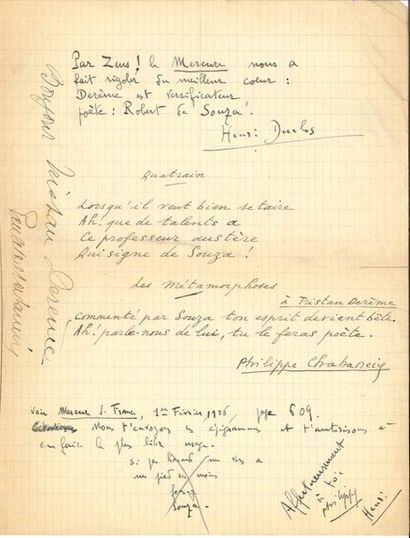 Par Zeus ! le Mercure nous a
fait rigoler du meilleur coeur :
Derème est versificateur
poète : Robert de Souza !
Henri Duclos
Quatrain
Lorsqu'il veut bien se taire
Ah ! que de talents a
Ce professeur austère
Qui signe de Souza !
Les Métamorphoses
à Tristan Derème
Commenté par Souza ton esprit devient bête.
Ah ! parle-nous de lui, tu le feras poète.
Philippe Chabaneix
voir Mercure d. France, 1er Février 1926, page 609.
Nous t'envoyons ces épigrammes et t'autorisons à
en faire le plus libre usage.
si par hasard un vers a
un pied en moins
Souza.
Affectueusement
à toi
Philippe
Henri
Bonjour Tristan Derème